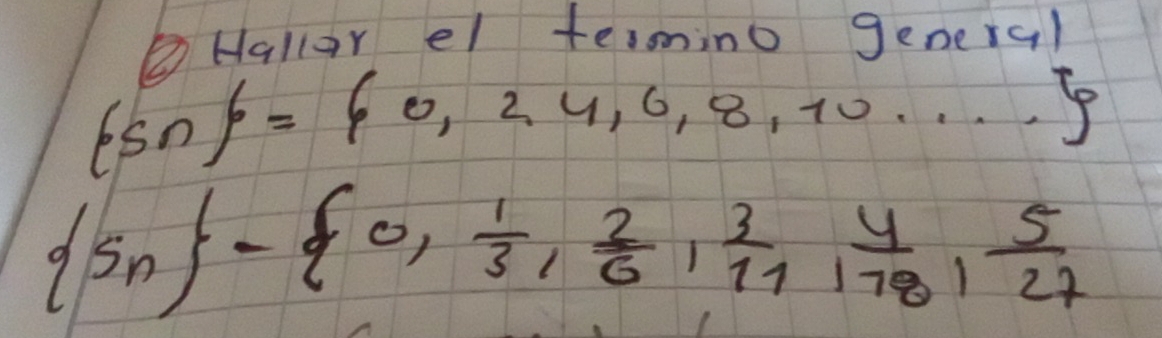 ② Hallar el termino general
{sn} = { 0, 2, 4, 6, 8, 10 . . . . . }
{Sn} - { 0, 1/3, 2/6, 3/11, 4/18, 5/27